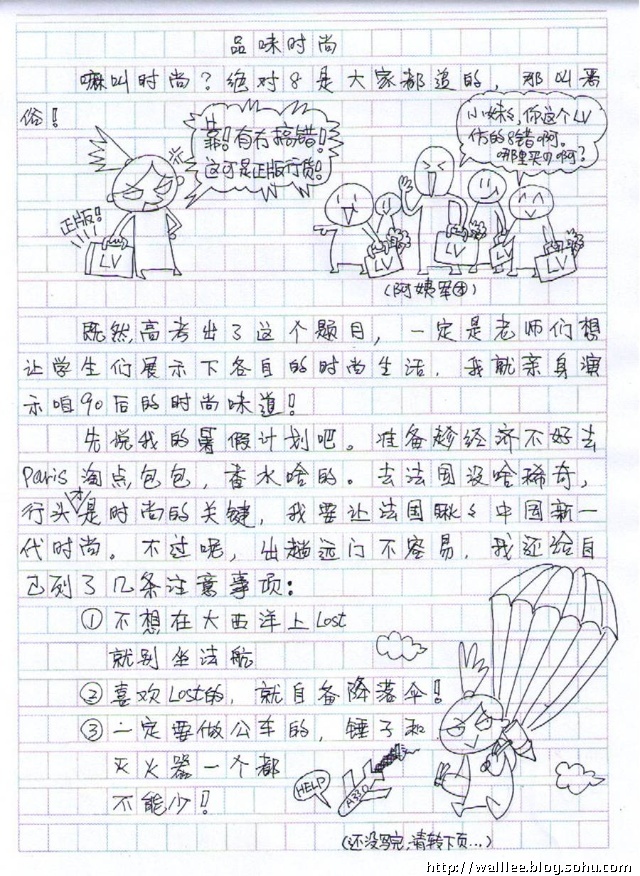 品味时尚
嘛叫时尚？绝对8是大家都道的，那叫恶
俗！
靠！有右搞错！
这可是正版行货！
小妹々，你这个LV
仿的8错啊。
哪里买的啊？
正版！
LV
LV
LV
LV
LV
（阿姨军团）
既然高考出了这个题目，一定是老师们想
让学生们展示下各自的时尚生活，我就亲身演
示咱90后的时尚味道！
先说我的暑假计划吧。准备趁经济不好去
Paris淘点包包，香水啥的。去法国没啥稀奇，
行头才是时尚的关键，我要让法国瞅々中国新一
代时尚。不过呢，出趟远门不容易，我还给自
己列了几条注意事项：
①不想在大西洋上Lost
就别坐法航
②喜欢Lost的，就自备降落伞！
③一定要做公车的，锤子和
灭火器一个都
不能少！
HELP
A330
（还没写完，请转下页...）
http://walllee.blog.sohu.com